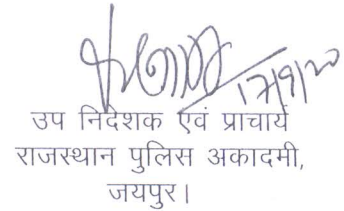 17/9/20
उप निदेशक एवं प्राचार्य
राजस्थान पुलिस अकादमी,
जयपुर।